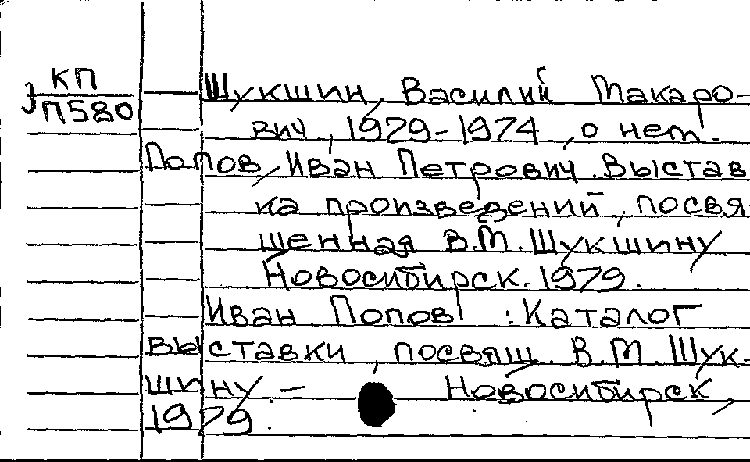 КП
П580
Шукшин, Василий Макаро-
вич, 1929-1974, о нем.
Попов, Иван Петрович. Выстав
ка произведений, посвя
щенная В.М. Шукшину
Новосибирск. 1979.
Иван Попов : Каталог
выставки, посвящ. В.М. Шук-
шину. - Новосибирск,
1979.